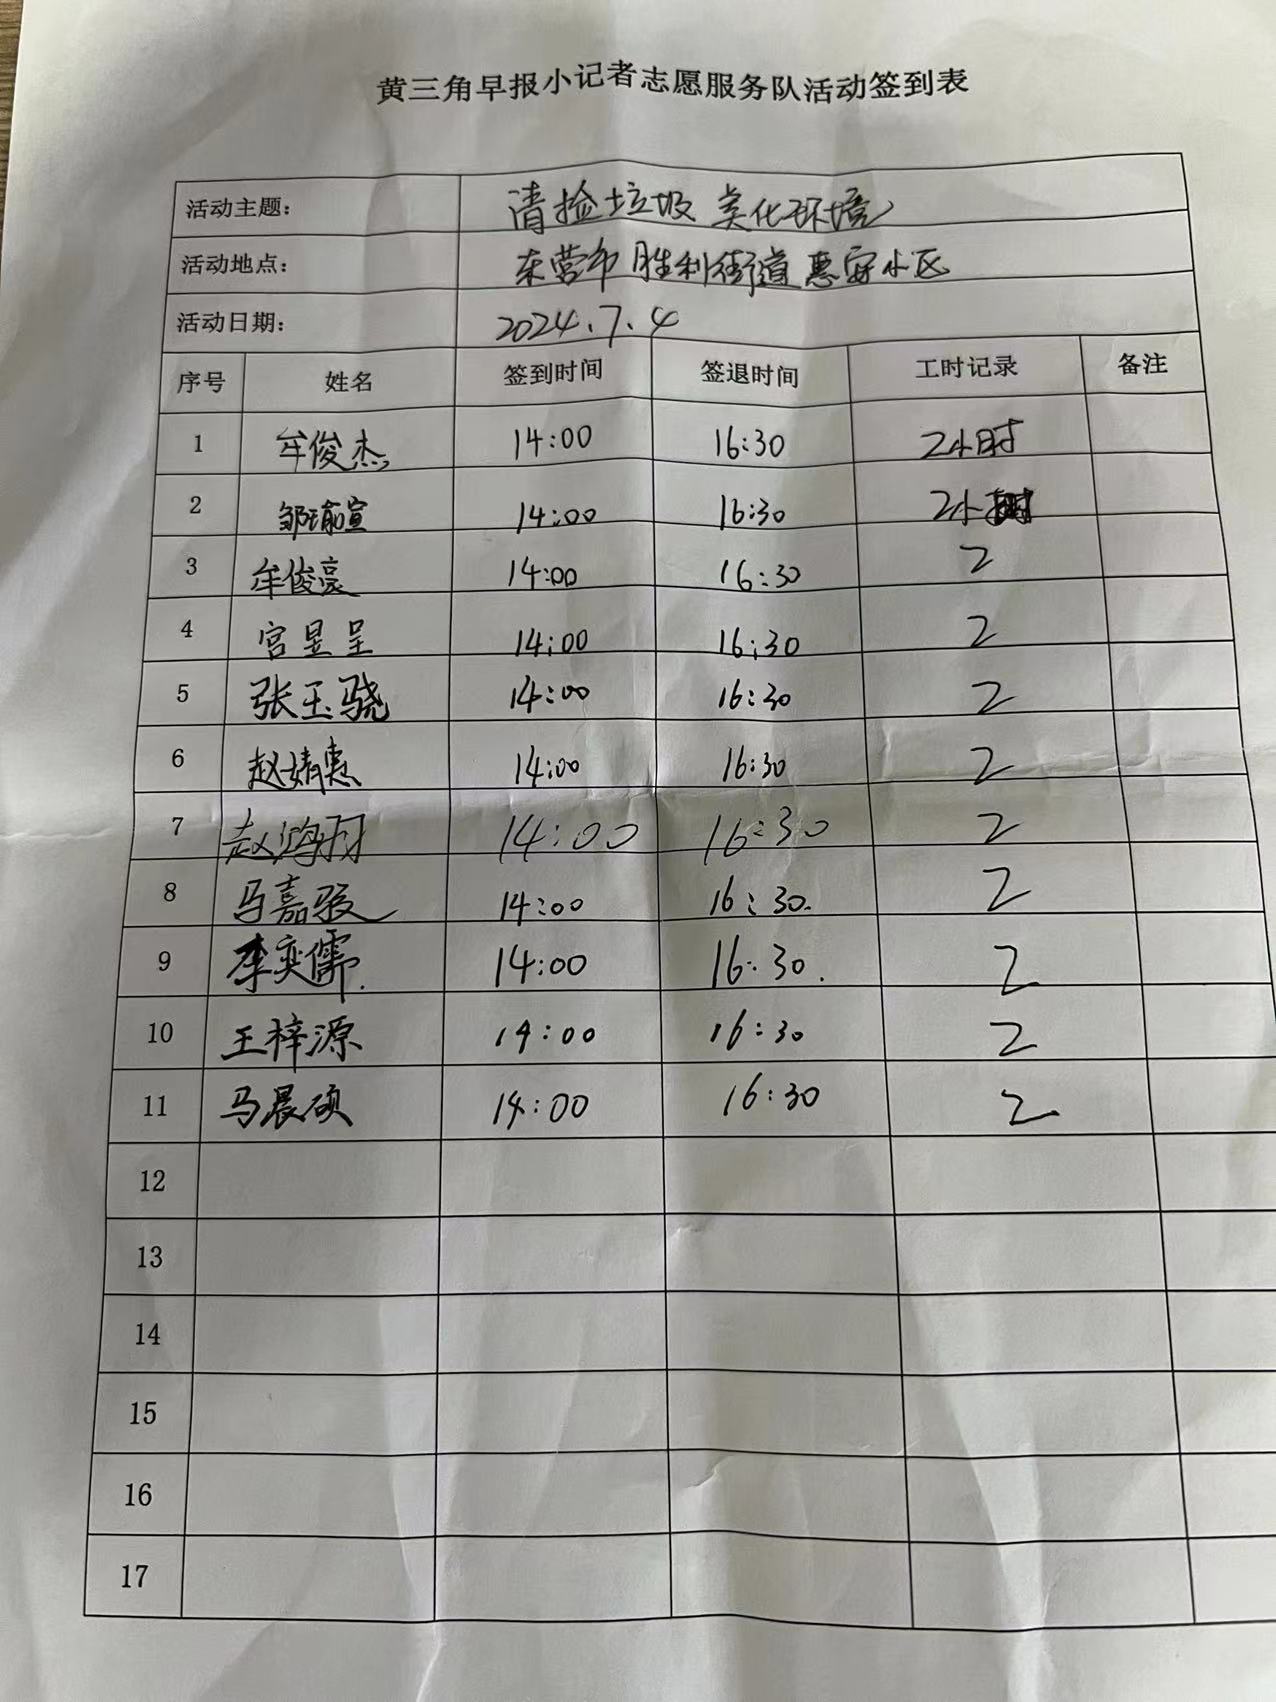 黄三角早报小记者志愿服务队活动签到表
活动主题： 清捡垃圾 美化环境
活动地点： 东营市胜利街道惠安小区
活动日期： 2024.7.4
序号 姓名 签到时间 签退时间 工时记录 备注
1 牟俊杰 14:00 16:30 2小时
2 邹瑜宣 14:00 16:30 2小时
3 牟俊豪 14:00 16:30 2
4 宫昱呈 14:00 16:30 2
5 张玉骁 14:00 16:30 2
6 赵婧惠 14:00 16:30 2
7 赵鸿羽 14:00 16:30 2
8 马嘉骏 14:00 16:30. 2
9 李奕儒. 14:00 16:30. 2
10 王梓源 14:00 16:30 2
11 马晨硕 14:00 16:30 2
12
13
14
15
16
17